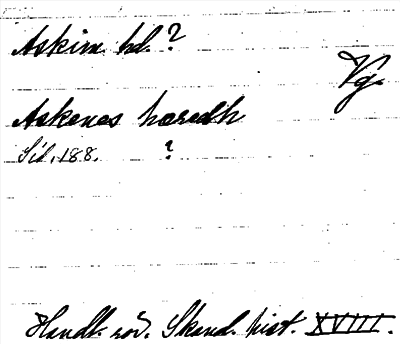 Askim hd. ?
Vg.
Askenes hæradh
Sid. 188. ?
Handl. rör. Skand. hist. XVIII.